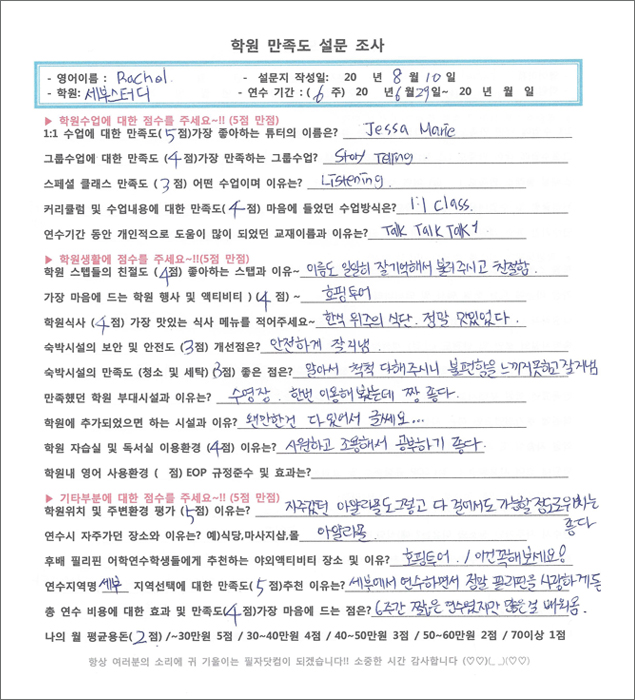 학원 만족도 설문 조사
- 영어이름 : Rachel. - 설문지 작성일: 20 년 8 월 10 일
- 학원: 세부스터디 - 연수 기간 : ( 6 주) 20 년 6 월 29 일~ 20 년 월 일
▶ 학원수업에 대한 점수를 주세요~!! (5점 만점)
1:1 수업에 대한 만족도( 5 점)가장 좋아하는 튜터의 이름은? Jessa Marie
그룹수업에 대한 만족도 ( 4 점)가장 만족하는 그룹수업? Story Telling.
스페셜 클래스 만족도 ( 3 점) 어떤 수업이며 이유는? Listening.
커리큘럼 및 수업내용에 대한 만족도( 4 점) 마음에 들었던 수업방식은? 1:1 class.
연수기간 동안 개인적으로 도움이 많이 되었던 교재이름과 이유는? Talk Talk Talk 1
▶ 학원생활에 점수를 주세요~!!(5점 만점)
학원 스텝들의 친절도 ( 4 점) 좋아하는 스텝과 이유~ 이름도 일일히 잘 기억해서 불러주시고 친절함.
가장 마음에 드는 학원 행사 및 액티비티 ) ( 4 점) ~ 호핑투어
학원식사 ( 4 점) 가장 맛있는 식사 메뉴를 적어주세요~ 한식 위주의 식단. 정말 맛있었다.
숙박시설의 보안 및 안전도 ( 3 점) 개선점은? 안전하게 잘 지냄.
숙박시설의 만족도 (청소 및 세탁) ( 3 점) 좋은 점은? 알아서 척척 다해주시니 불편함을 느끼지 못하고 잘지냄
만족했던 학원 부대시설과 이유는? 수영장. 한번 이용해봤는데 짱 좋다.
학원에 추가되었으면 하는 시설과 이유? 왠만한건 다 있어서 글쎄요...
학원 자습실 및 독서실 이용환경 ( 4 점) 이유는? 시원하고 조용해서 공부하기 좋다.
학원내 영어 사용환경 ( 점) EOP 규정준수 및 효과는?
▶ 기타부분에 대한 점수를 주세요~!! (5점 만점)
학원위치 및 주변환경 평가 ( 5 점) 이유는? 자주갔던 아얄라몰도 그렇고 다 걸어서도 가능할 정도로 위치는 좋다
연수시 자주가던 장소와 이유는? 예)식당,마사지샵,몰 아얄라몰.
후배 필리핀 어학연수학생들에게 추천하는 야외액티비티 장소 및 이유? 호핑투어. 이건 꼭 해보세요!
연수지역명 세부 지역선택에 대한 만족도( 5 점)추천 이유는? 세부에서 연수하면서 정말 필리핀을 사랑하게 됨
총 연수 비용에 대한 효과 및 만족도( 4 점)가장 마음에 드는 점은? 6주간 짧은 연수였지만 많은걸 배워옴.
나의 월 평균용돈( 2 점) /~30만원 5점 / 30~40만원 4점 / 40~50만원 3점 / 50~60만원 2점 / 70이상 1점
항상 여러분의 소리에 귀 기울이는 필자닷컴이 되겠습니다!! 소중한 시간 감사합니다 (♡♡)(_ _)(♡♡)